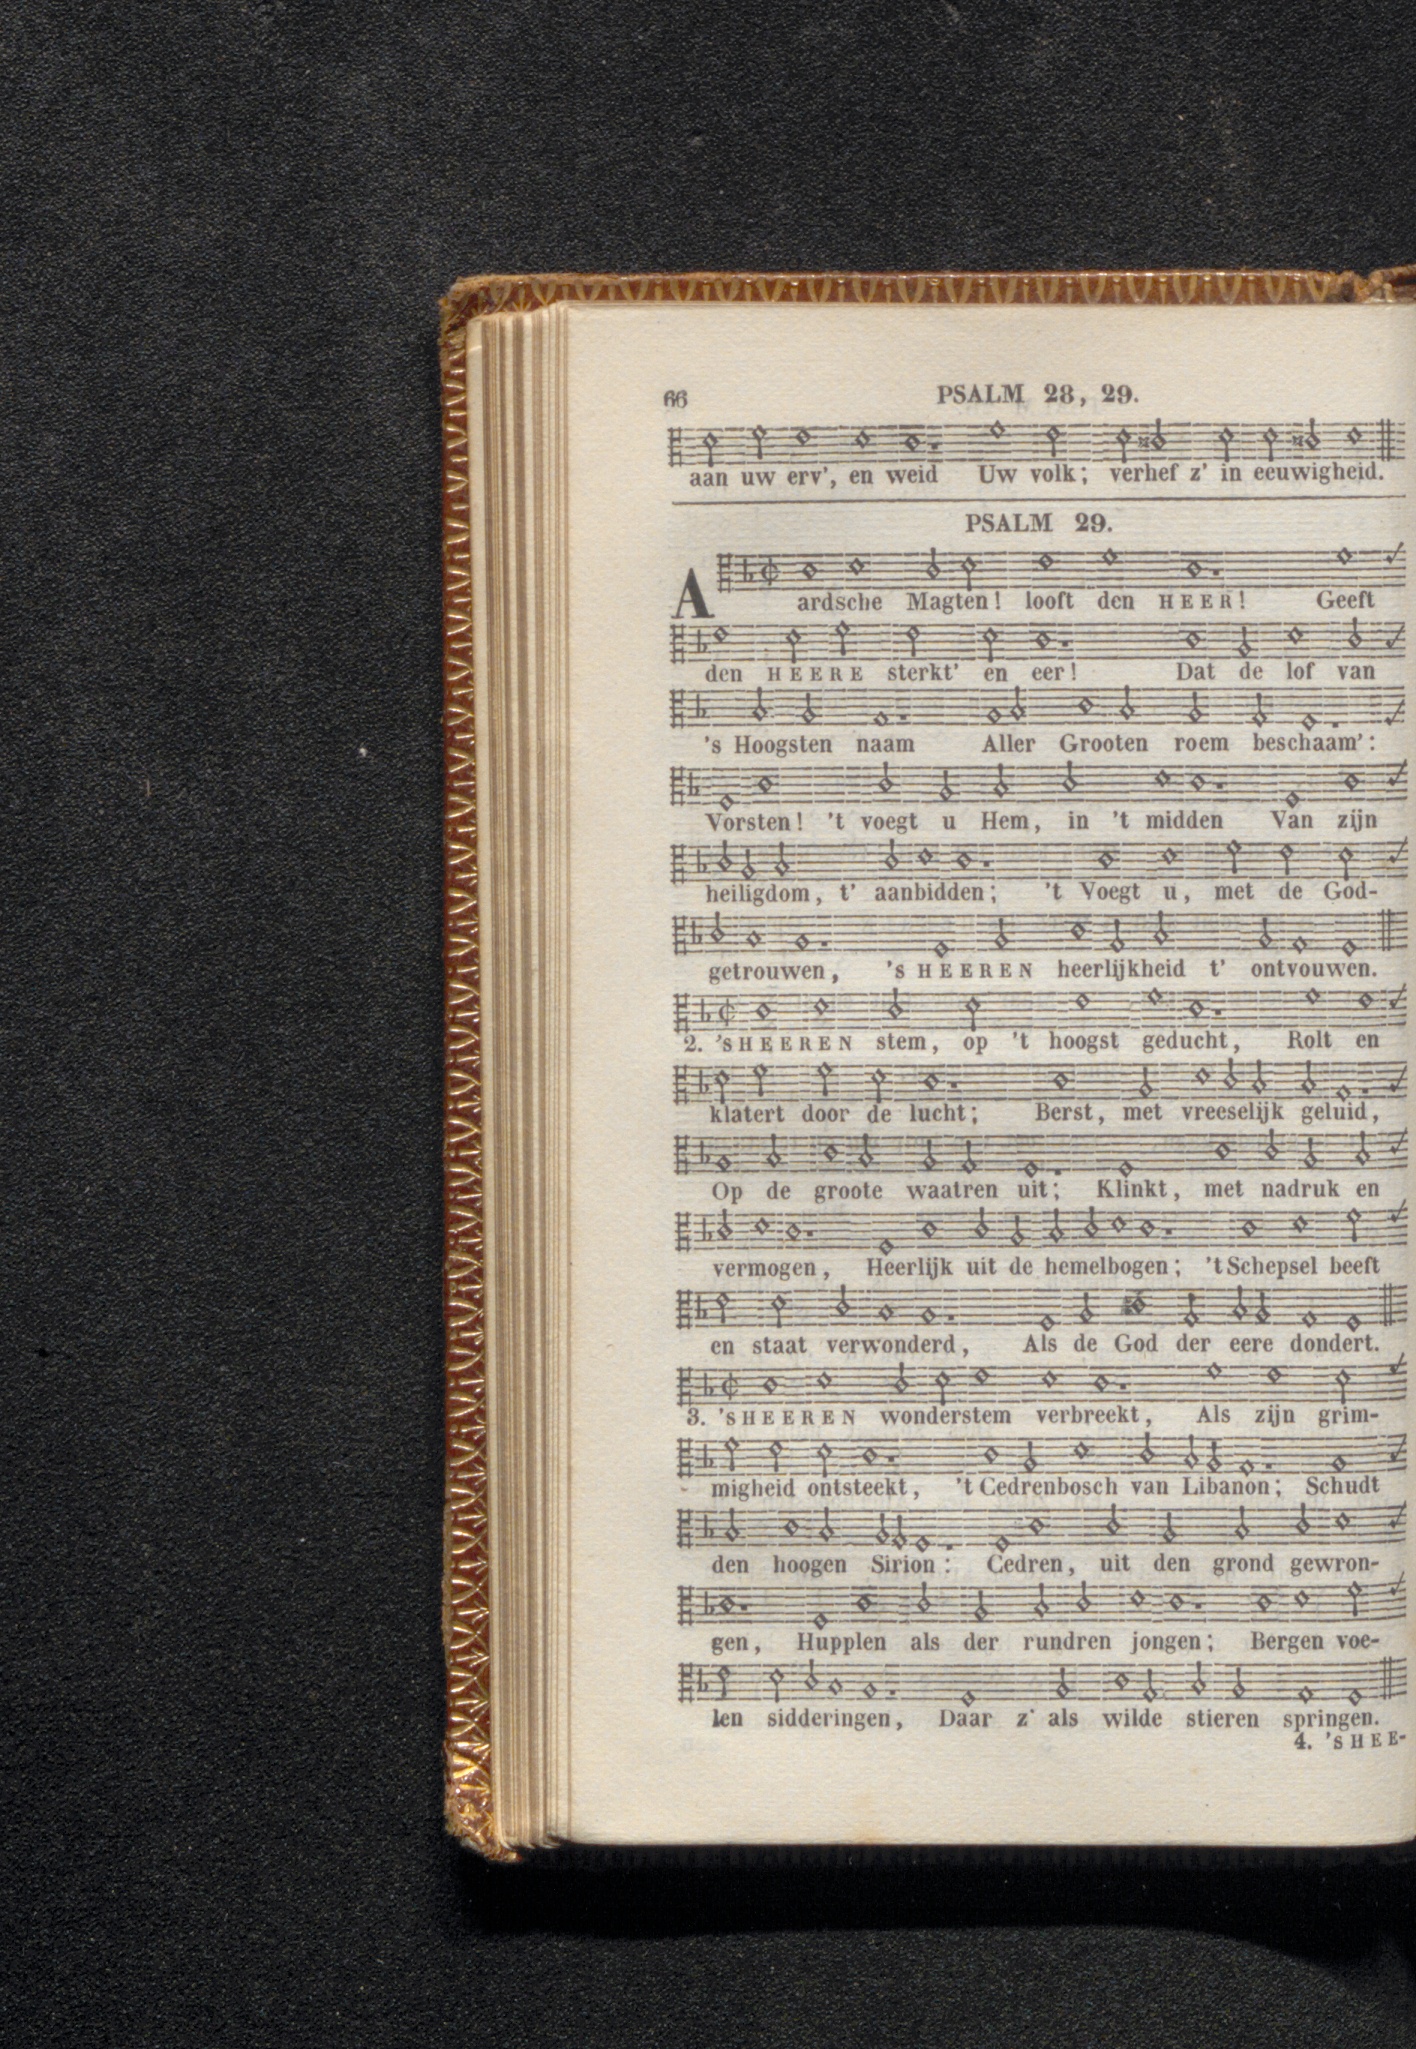 66 PSALM 28, 29.
aan uw erv', en weid Uw volk; verhef z' in eeuwigheid.
PSALM 29.
Aardsche Magten! looft den HEER! Geeft
den HEERE sterkt' en eer! Dat de lof van
's Hoogsten naam Aller Grooten roem beschaam':
Vorsten! 't voegt u Hem, in 't midden Van zijn
heiligdom, t' aanbidden; 't Voegt u, met de God-
getrouwen, 's HEEREN heerlijkheid t' ontvouwen.
2. 'sHEEREN stem, op 't hoogst geducht, Rolt en
klatert door de lucht; Berst, met vreeselijk geluid,
Op de groote waatren uit; Klinkt, met nadruk en
vermogen, Heerlijk uit de hemelbogen; 't Schepsel beeft
en staat verwonderd, Als de God der eere dondert.
3. 'sHEEREN wonderstem verbreekt, Als zijn grim-
migheid ontsteekt, 't Cedrenbosch van Libanon; Schudt
den hoogen Sirion: Cedren, uit den grond gewron-
gen, Hupplen als der rundren jongen; Bergen voe-
len sidderingen, Daar z' als wilde stieren springen.
4. 'sHEE-